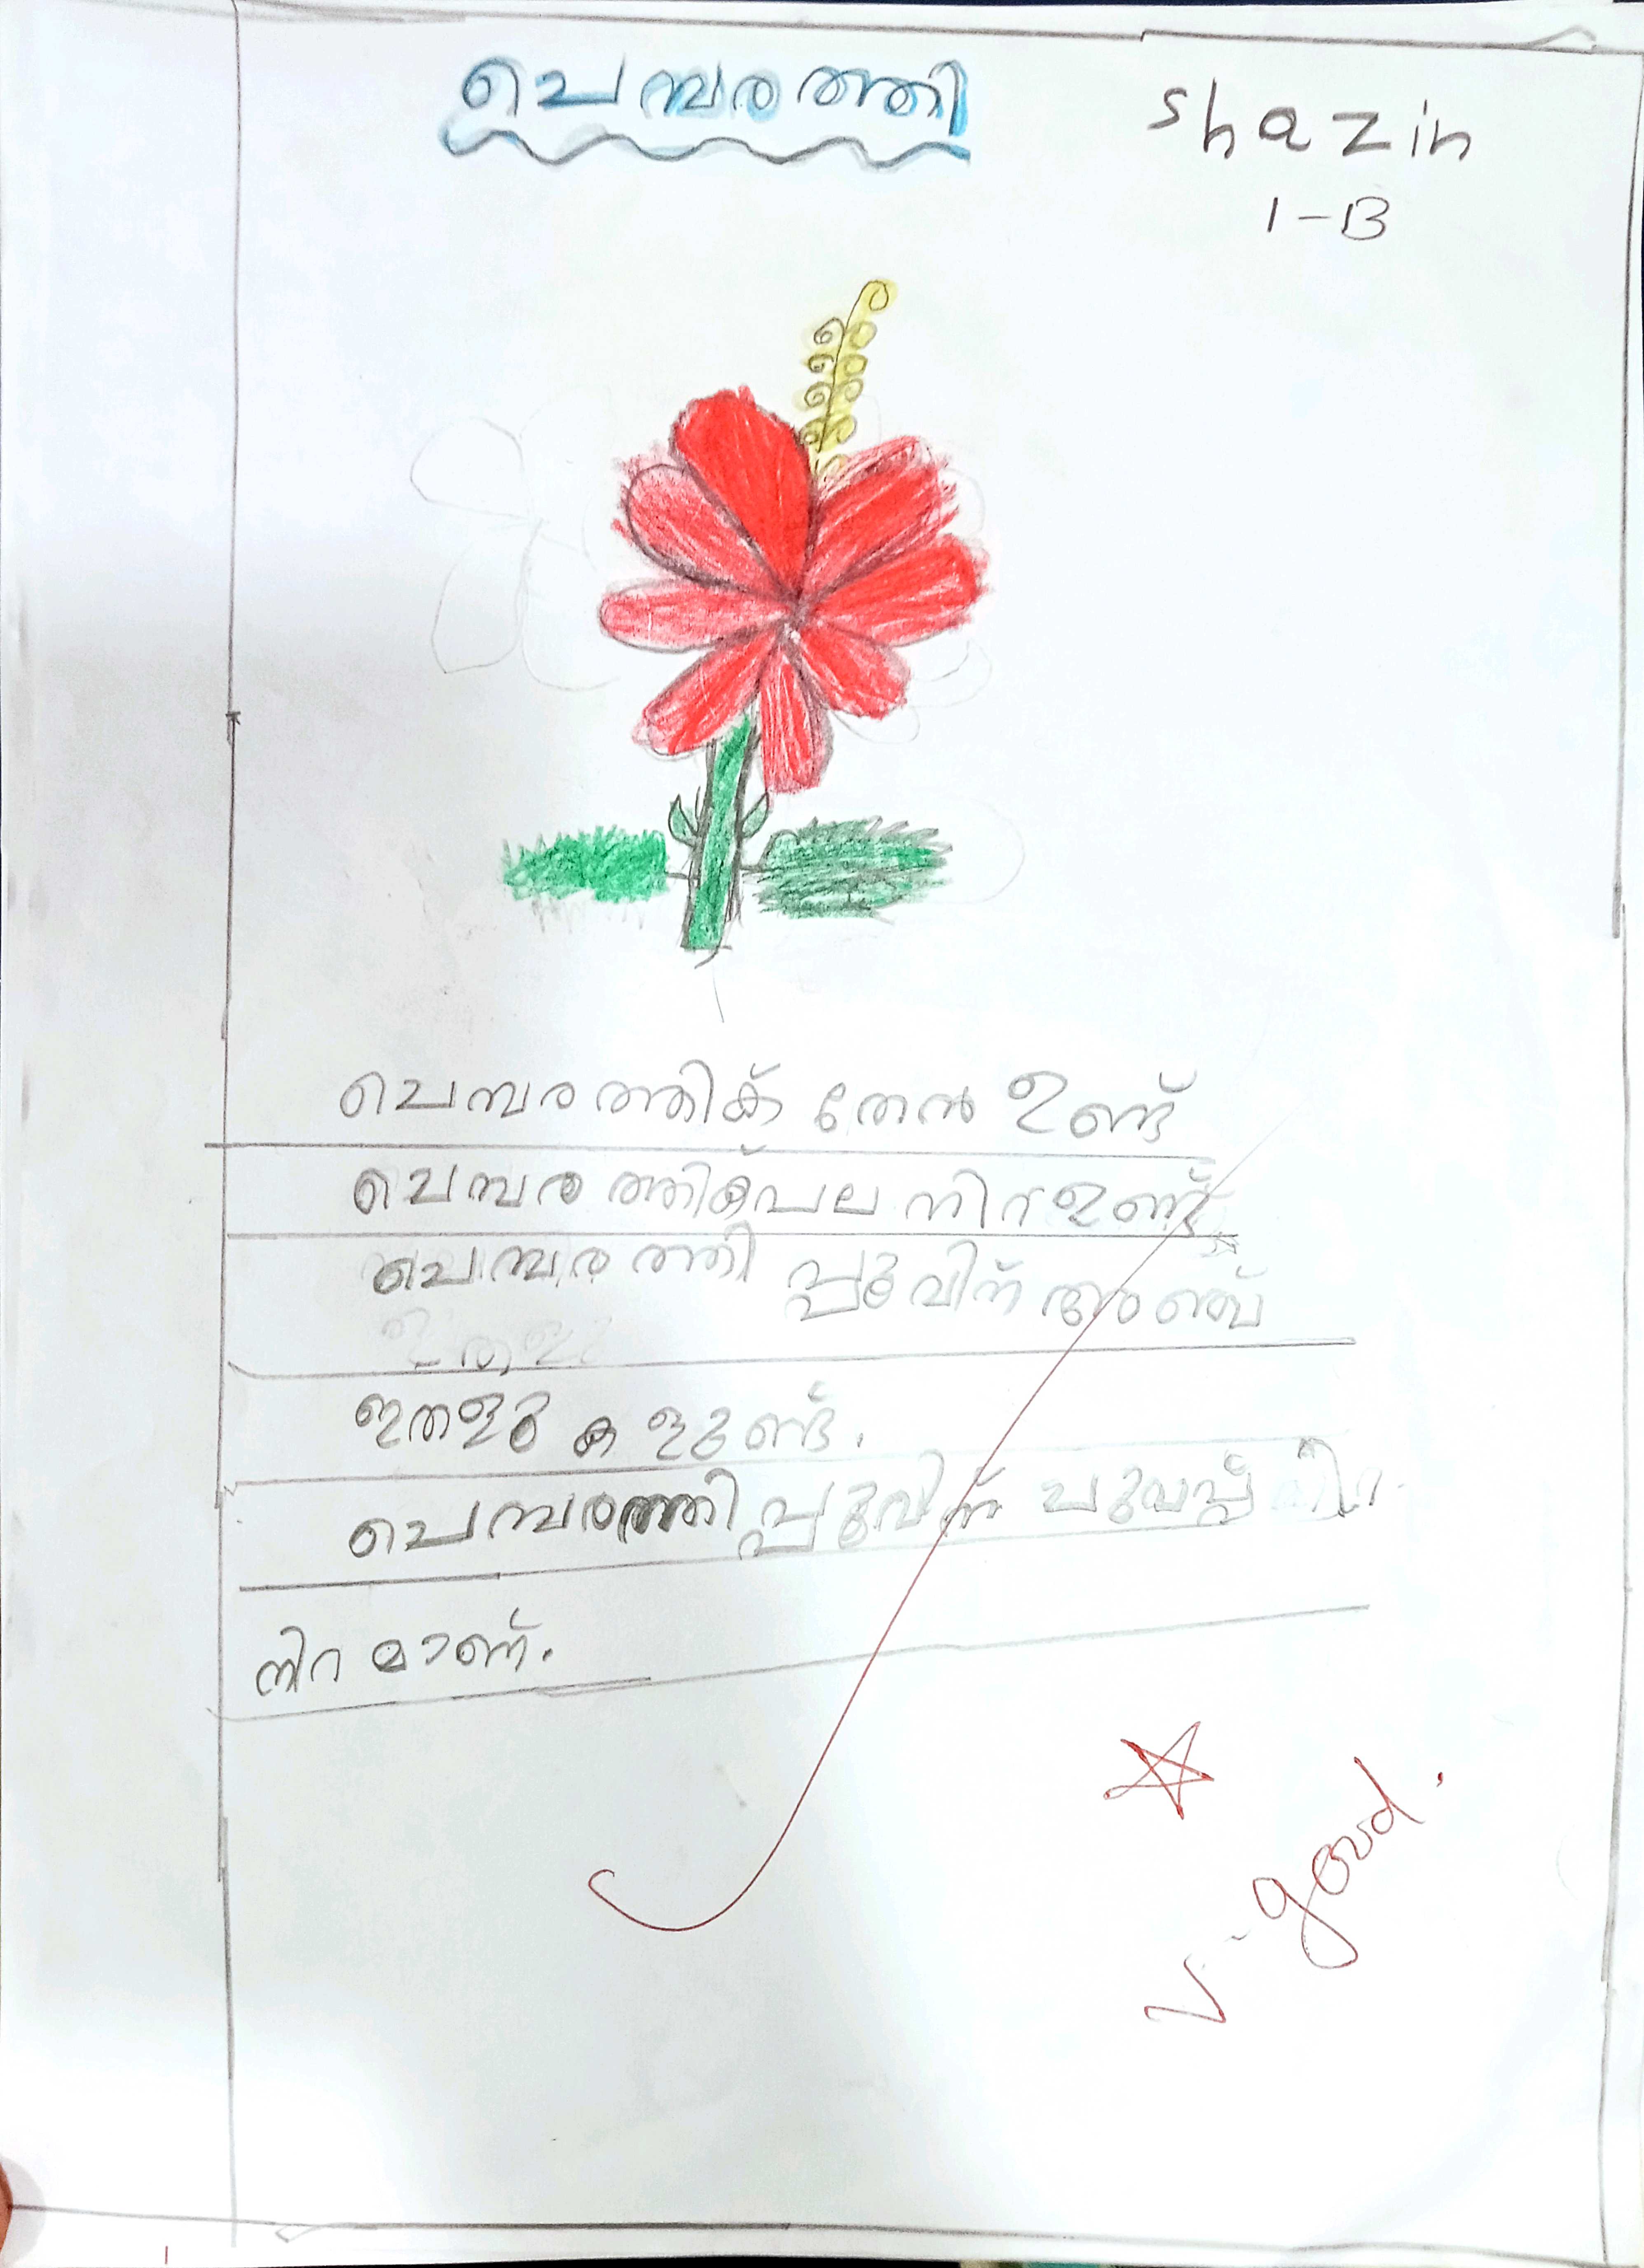 ചെമ്പരത്തി
shazin
1-B
ചെമ്പരത്തിക് തേൻ ഉണ്ട്
ചെമ്പരത്തിക് പല നിറ ഉണ്ട്
ചെമ്പരത്തി പ്പുവിന് അഞ്ച്
ഇതളു കളുണ്ട്.
ചെമ്പരത്തി പ്പുവിന് ചുവപ്പ്
നിറ മാണ്.
V. good.